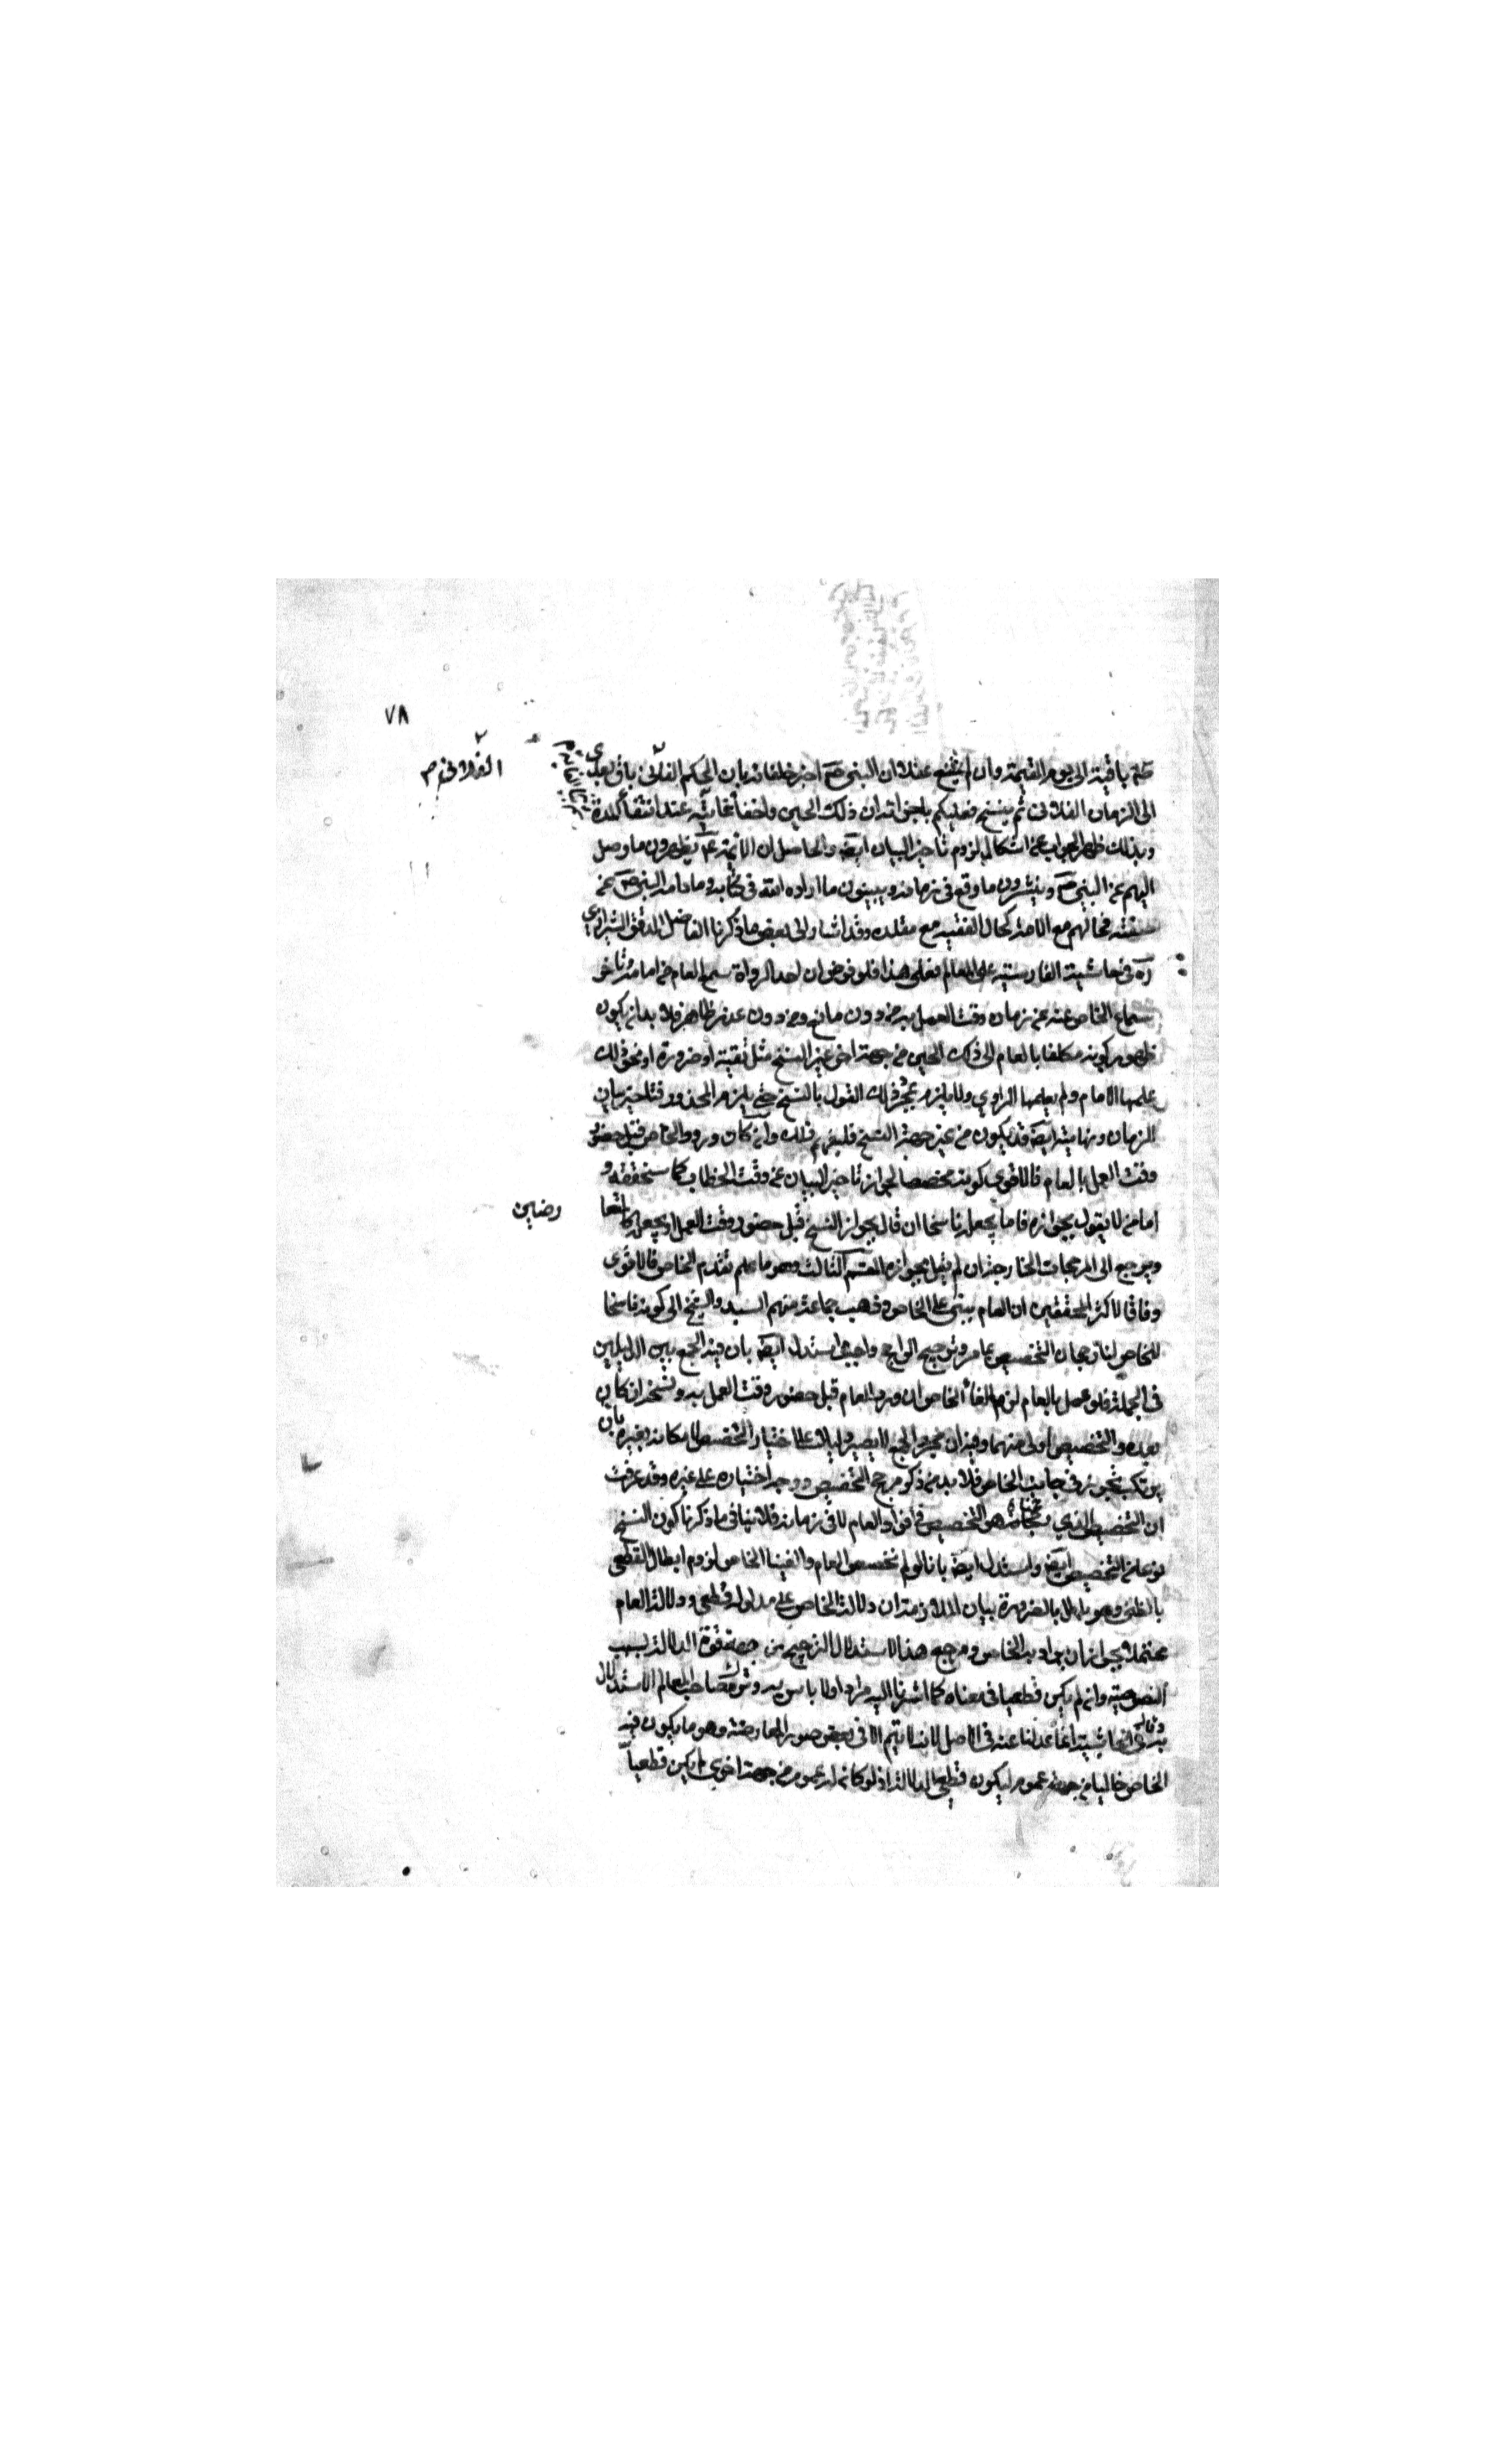 ٧٨
باقية الى يوم القيمة وان لم يمتنع عقلا ان النبي ص اخبر خلفائه بان الحكم الفلاني باق بعدي
الى الزمان الفلاني ثم ينسخ فعليكم باجرائه ان ذلك الحين واخفاء غايته عند انتفاء المدة
وبذلك ظهر الجواب عن اشكال لزوم تاخير البيان ايضا والحاصل ان الائمة ع يظهرون ما وصل
اليهم عن النبي ص وينشرون ما وقع في زمانه ويبينون ما اراده الله في كتابه وما دامه النبي ص عن
سنته فحالهم مع الامة كحال الفقيه مع مقلده وقد اشار الى بعض ما ذكرنا الفاضل المدقق الشيرازي
ره في حاشيته الفارسية على المعالم فعلى هذا فلو فرض ان احد الرواة سمع العام من امامه وتاخر
سماع الخاص عنه عن زمان وقت العمل به من دون مانع ومن دون عذر ظاهر فلا بد ان يكون
ظهور كونه مكلفا بالعام الى ذلك الحين من جهة اخرى غير النسخ مثل تقية او ضرورة او نحو ذلك
علمها الامام ولم يعلمها الراوي ولا يلزم بمجرد ذلك القول بالنسخ حتى يلزم المحذور فتاخير بيان
الزمان ونهايته ايضا قد يكون من غير جهة النسخ فليفهم ذلك وان كان ورود الخاص قبل حضور
وقت العمل بالعام فالاقوى كونه مخصصا لجواز تاخير البيان عن وقت الخطاب كما سنحققه و
اما من لا يقول بجوازه فاما يجعله ناسخا ان قال بجواز النسخ قبل حضور وقت العمل او يجعله كالمتعا
رضين
ويرجع الى المرجحات الخارجة ان لم يقل بجوازه القسم الثالث وهو ما علم تقدم الخاص فالاقوى
وفاقا لاكثر المحققين ان العام يبنى على الخاص وذهب جماعة منهم السيد والشيخ الى كونه ناسخا
للخاص لنا رجحان التخصيص بما مر وترجيح الراجح واجب استدل ايضا بان فيه الجمع بين الدليلين
في الجملة فلو عمل بالعام لزم الغاء الخاص ان ورد العام قبل حضور وقت العمل به ونسخه ان كان
بعده والتخصيص اولى منهما وفيه ان مجرد الجمع لا يصير دليلا على اختيار التخصيص لامكانه بغيره بان
يرتكب تجوز في جانب الخاص فلا بد من ذكر مرجح التخصيص ووجه اختياره على غيره وقد عرفت
ان التخصيص الذي رجحناه هو التخصيص في افراد العام لا في زمانه فلا ينافي ما ذكرنا كون النسخ
نوعا من التخصيص ايضا واستدل ايضا بانا لو لم نخصص العام والغينا الخاص لزم ابطال القطعي
بالظني وهو باطل بالضرورة بيان الملازمة ان دلالة الخاص على مدلوله قطعي ودلالة العام
محتملة لجواز ان يراد به الخاص ومرجع هذا الاستدلال الترجيح من جهة قوة الدلالة بسبب
النصوصية وان لم يكن قطعيا في معناه كما اشرنا اليه مرارا ولا باس به وترك صاحب المعالم الاستدلال
به وقال في الحاشية انما عدلنا عنه في الاصل لانه لا يتم الا في بعض صور المعارضة وهو ما يكون فيه
الخاص خاليا من جهة عموم ليكون قطعي الدلالة اذ لو كان له عموم من جهة اخرى لم يكن قطعيا